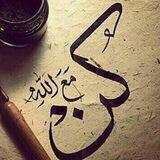 كن
مَعَ اللّٰهِ